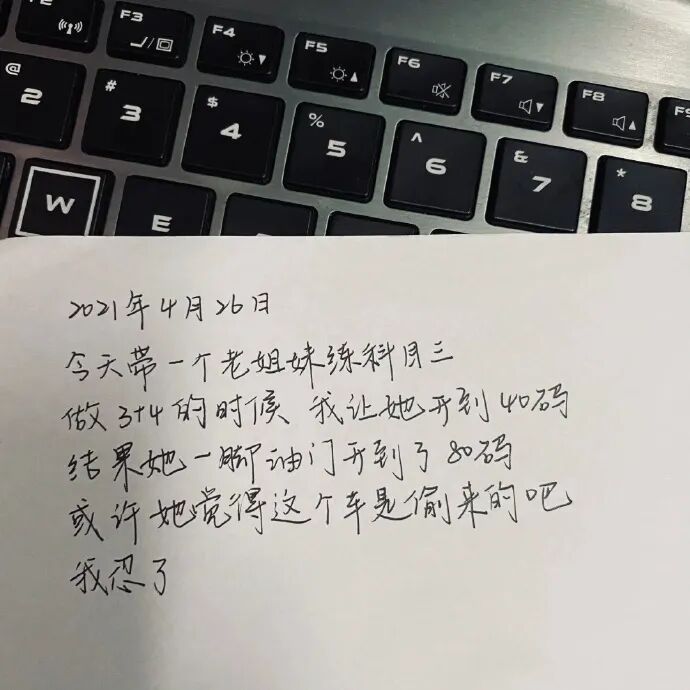 F2
F3
F4
F5
F6
F7
F8
F9
@
2
#
3
$
4
%
5
^
6
&
7
*
8
W
E
2021年4月26日
今天带一个老姐妹练科目三
做3+4的时候 我让她开到40码
结果她一脚油门开到了80码
或许她觉得这个车是偷来的吧
我忍了